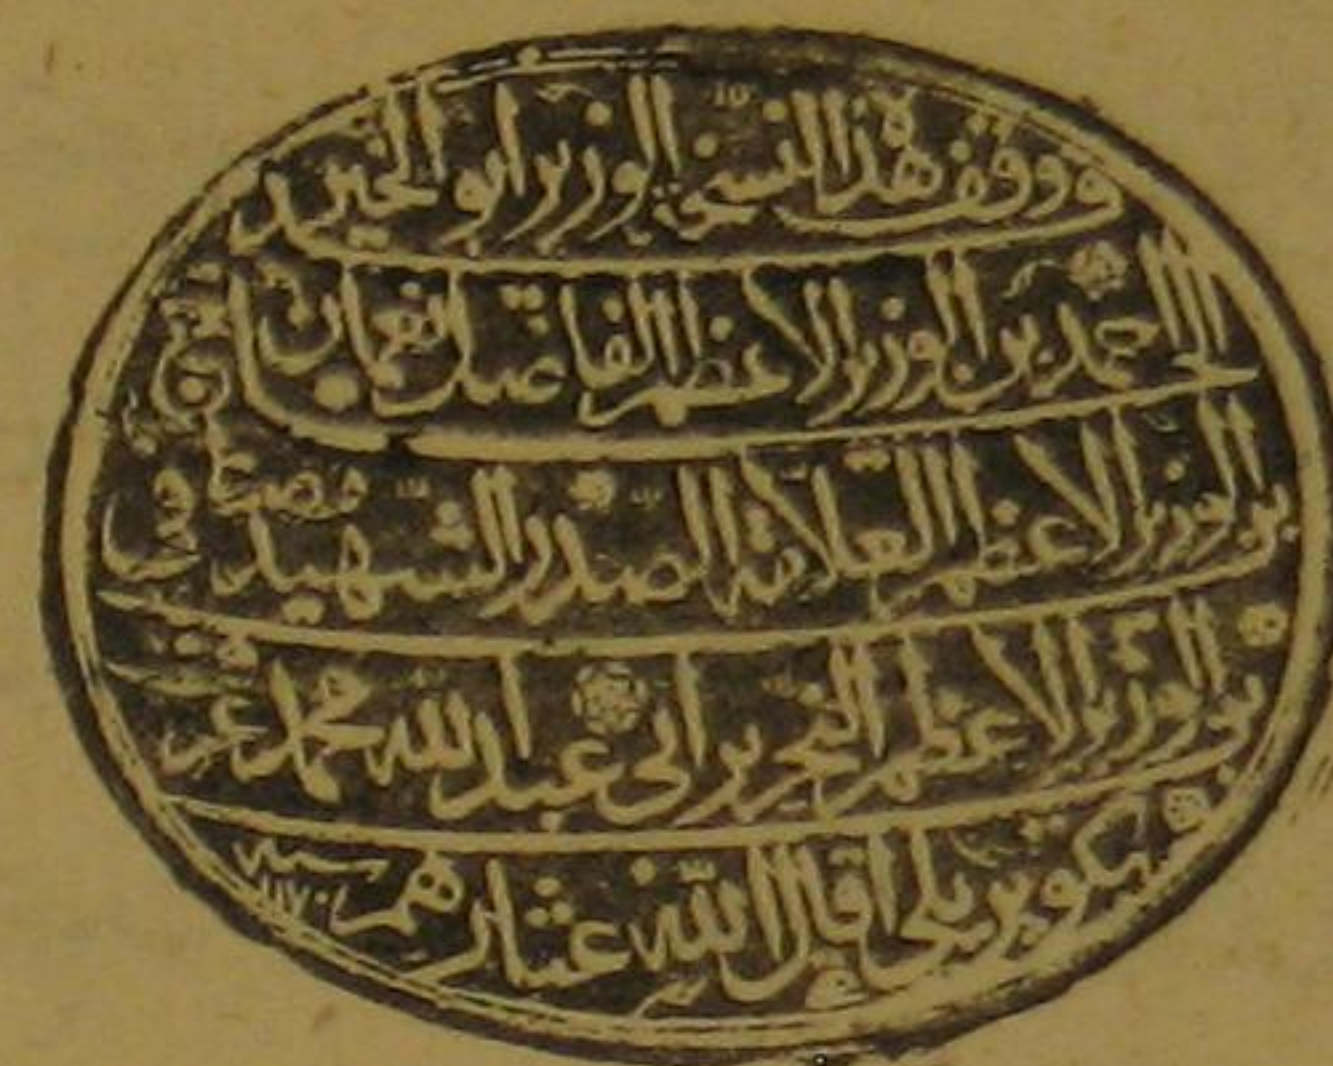 ووقف هذا النسخة الوزير ابو الخير
الحاج احمد بن الوزير الاعظم الفاضل نعمان باشا
بن الوزير الاعظم العلامة الصدر الشهيد مصطفى
بن الوزير الاعظم النحرير ابي عبد الله محمد عرف
بكوبريلي اقال الله عثارهم سنه ١١٧٠